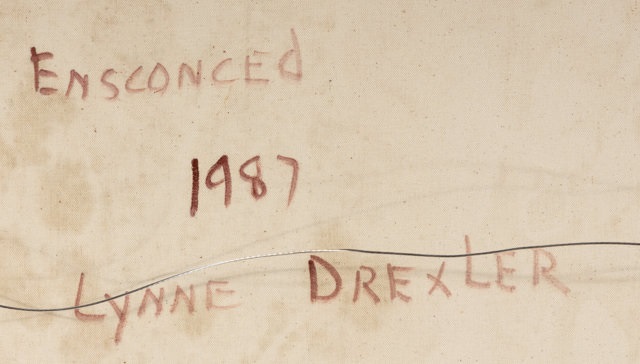 ENSCONCEd
1987
LyNNE DRExLER